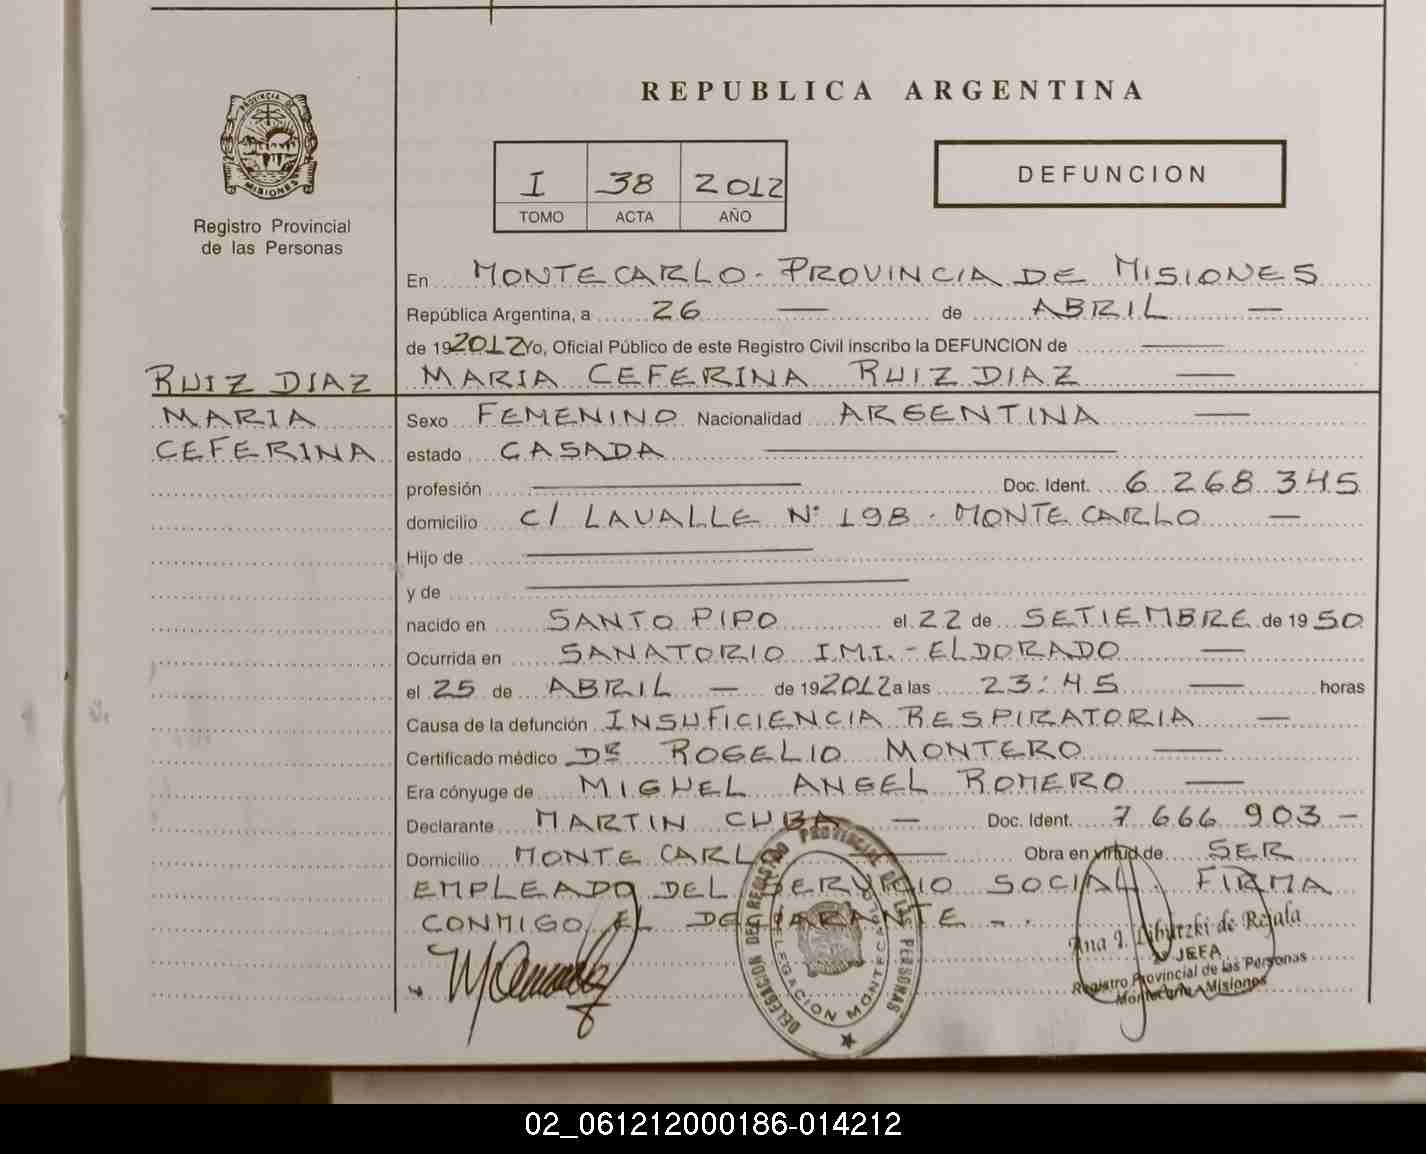 REPUBLICA ARGENTINA
PROVINCIA DE
MISIONES
Registro Provincial
de las Personas
I 38 2012
TOMO ACTA AÑO
DEFUNCION
En MONTECARLO - PROVINCIA DE MISIONES
República Argentina, a 26 — de ABRIL —
de 192012 Yo, Oficial Público de este Registro Civil inscribo la DEFUNCION de —
RUIZ DIAZ
MARIA
CEFERINA
MARIA CEFERINA RUIZ DIAZ —
Sexo FEMENINO Nacionalidad ARGENTINA —
estado CASADA —
profesión — Doc. Ident. 6 268 345
domicilio C/ LAVALLE N° 198 - MONTECARLO —
Hijo de —
y de —
nacido en SANTO PIPO el 22 de SETIEMBRE de 1950
Ocurrida en SANATORIO I.M.I. - ELDORADO —
el 25 de ABRIL — de 192012 a las 23:45 — horas
Causa de la defunción INSUFICIENCIA RESPIRATORIA —
Certificado médico DR ROGELIO MONTERO —
Era cónyuge de MIGUEL ANGEL ROMERO —
Declarante MARTIN CUBA — Doc. Ident. 7 666 903 —
Domicilio MONTECARLO — Obra en virtud de SER
EMPLEADO DEL SERVICIO SOCIAL. FIRMA
CONMIGO EL DECLARANTE - .
DELEGACION DEL REGISTRO PROVINCIAL DE LAS PERSONAS
DELEGACION MONTECARLO
Ana I. Liburzki de Rejala
JEFA
Registro Provincial de las Personas
Montecarlo - Misiones
02_061212000186-014212